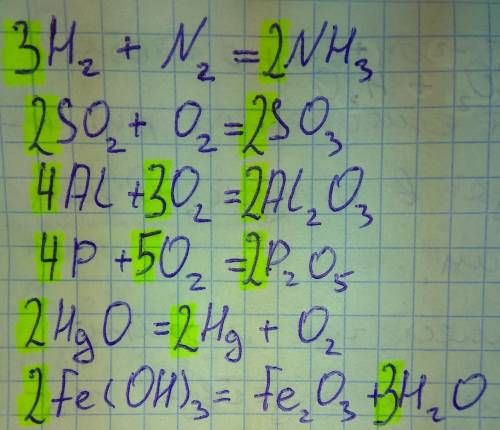 3H₂ + N₂ = 2NH₃
2SO₂ + O₂ = 2SO₃
4Al + 3O₂ = 2Al₂O₃
4P + 5O₂ = 2P₂O₅
2HgO = 2Hg + O₂
2Fe(OH)₃ = Fe₂O₃ + 3H₂O